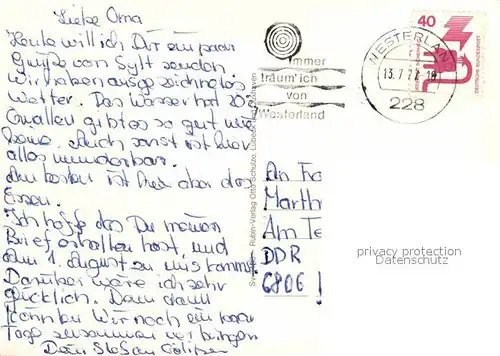 Liebe Oma
Heute will ich Dir ein paar
Grüße von Sylt senden
Wir haben ausgezeichnetes
Wetter. Das Wasser hat 20°
Quallen gibt es so gut wie
keine. Auch sonst ist hier
alles wunderbar.
Am besten ist hier aber das
Essen.
Ich hoffe das Du meinen
Brief erhalten hast, und
am 1. August zu uns kommst.
Darüber wäre ich sehr
glücklich. Denn dann
können wir noch ein paar
Tage zusammen verbringen
Dein Stefan
immer
träum'ich
von
Westerland
WESTERLAND
13.7.77-18
228
40
DEUTSCHE BUNDESPOST
Rubin-Verlag Otto Schulze, Lübeck
An Fra
Marth
Am Te
DDR
6806
privacy protection
Datenschutz